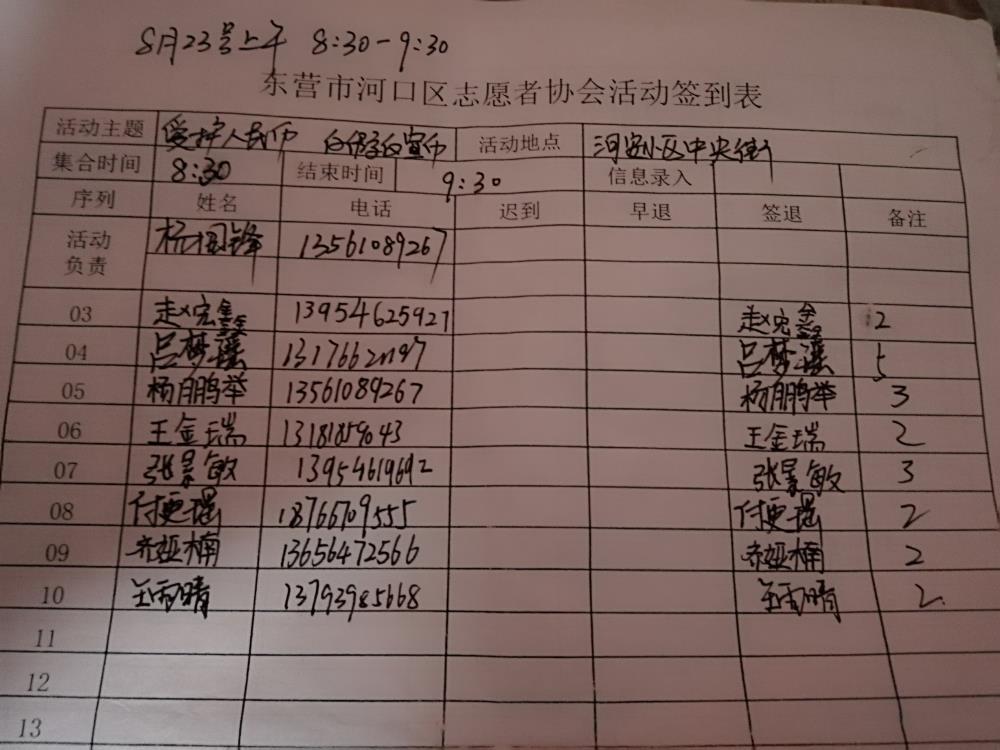 8月23号上午 8:30-9:30
东营市河口区志愿者协会活动签到表
活动主题 爱护人民币 活动地点 河安小区中央街
集合时间 8:30 结束时间 9:30 信息录入
序列 姓名 电话 迟到 早退 签退 备注
活动负责 杨国锋 13561089267
03 赵宏鑫 13954625927 赵宏鑫 2
04 吕梦瑶 吕梦瑶 5
05 杨鹏举 13561089267 杨鹏举 3
06 王金瑞 王金瑞 2
07 张景敏 13954619692 张景敏 3
08 付更瑶 18766709555 付更瑶 2
09 齐娅楠 13656472566 齐娅楠 2
10 王雨晴 13793985668 王雨晴 2
11
12
13